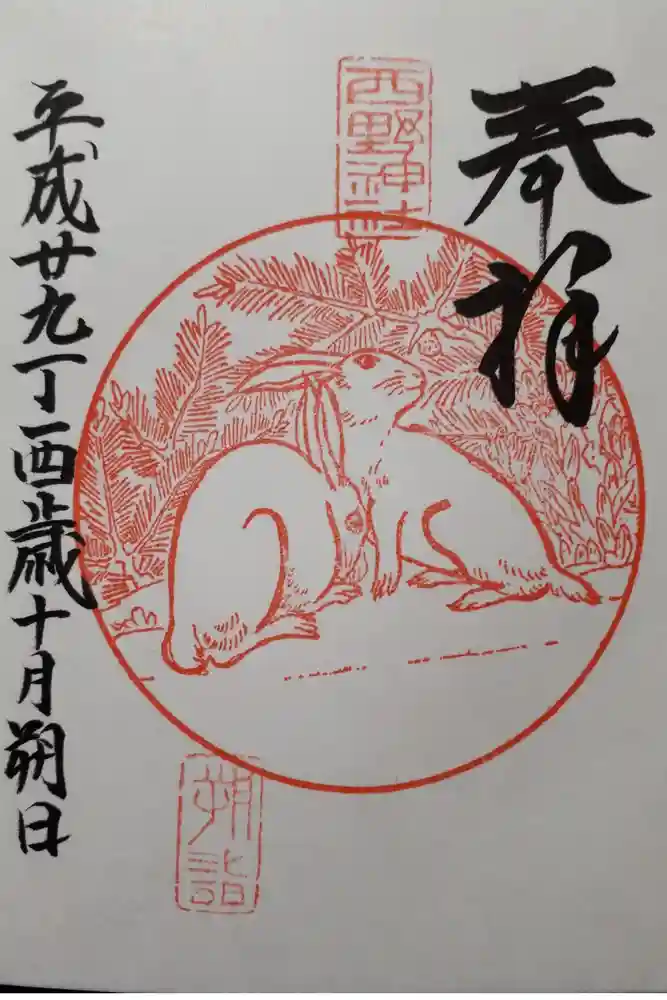 奉拝
西野神社
朔詣
平成廿九丁酉歳十月朔日